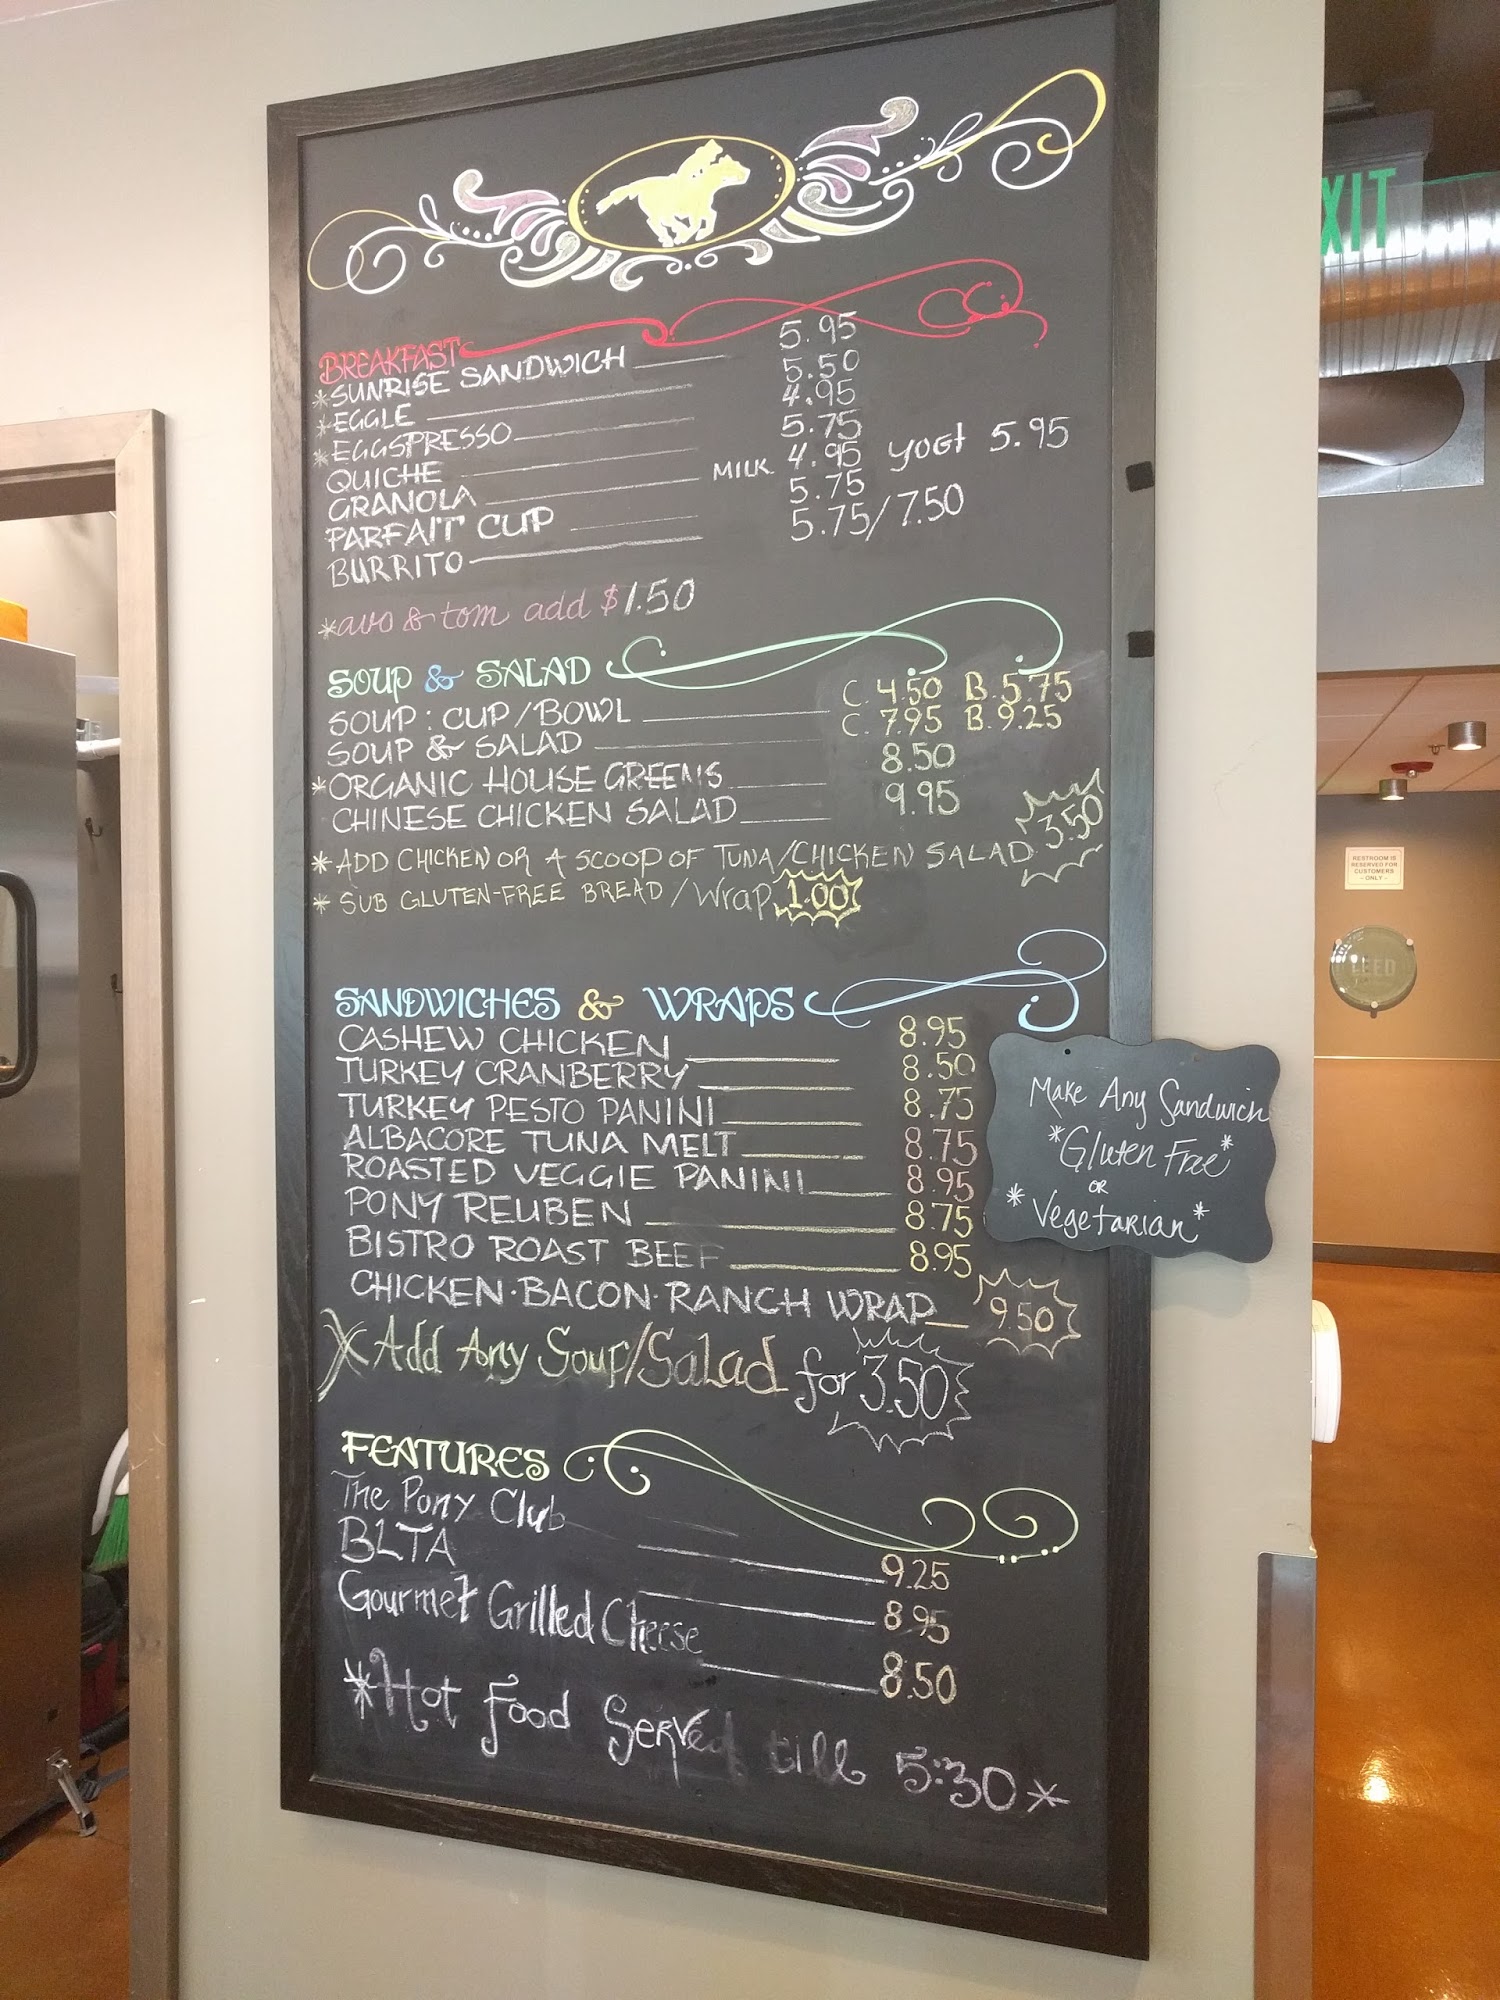 BREAKFAST
*SUNRISE SANDWICH 5.95
*EGGLE 5.50
*EGGSPRESSO 4.95
QUICHE 5.75
GRANOLA MILK 4.95 YOGt 5.95
PARFAIT CUP 5.75
BURRITO 5.75/7.50
*avo & tom add $1.50
SOUP & SALAD
SOUP: CUP/BOWL C. 4.50 B. 5.75
SOUP & SALAD C. 7.95 B. 9.25
*ORGANIC HOUSE GREENS 8.50
CHINESE CHICKEN SALAD 9.95
* ADD CHICKEN OR A SCOOP OF TUNA/CHICKEN SALAD 3.50
* SUB GLUTEN-FREE BREAD/Wrap 1.00
SANDWICHES & WRAPS
CASHEW CHICKEN 8.95
TURKEY CRANBERRY 8.50
TURKEY PESTO PANINI 8.75
ALBACORE TUNA MELT 8.75
ROASTED VEGGIE PANINI 8.95
PONY REUBEN 8.75
BISTRO ROAST BEEF 8.95
CHICKEN·BACON·RANCH WRAP 9.50
*Add Any Soup/Salad for 3.50
FEATURES
The Pony Club 9.25
BLTA 8.95
Gourmet Grilled Cheese 8.50
*Hot Food Served till 5:30*
Make Any Sandwich
*Gluten Free*
OR
*Vegetarian*
EXIT
RESTROOM IS
RESERVED FOR
CUSTOMERS
- ONLY -
LEED